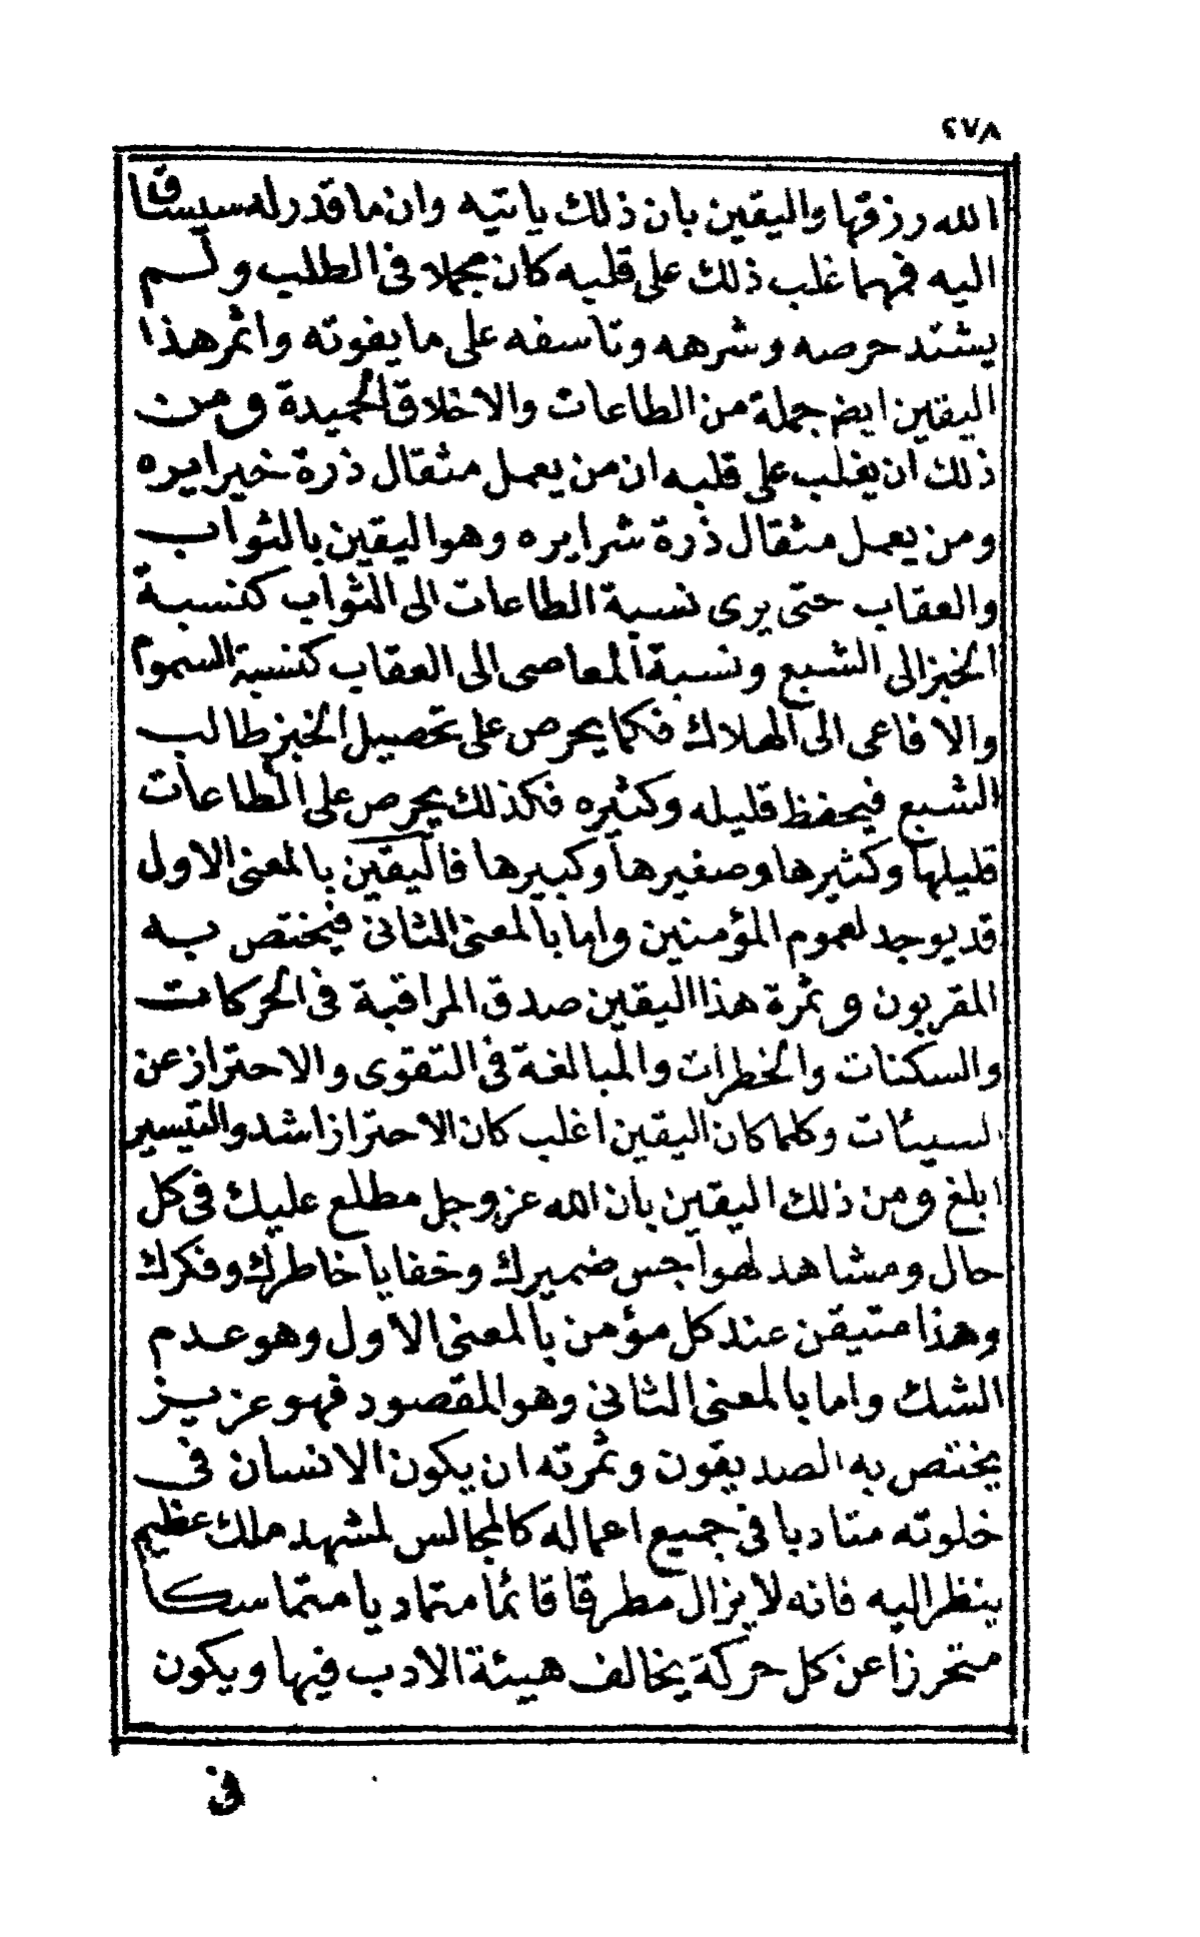 ٢٧٨
الله رزقها واليقين بان ذلك ياتيه وان ما قدر له سيساق
اليه فهما غلب ذلك على قلبه كان مجملا فى الطلب ولم
يشتد حرصه وشرهه وتاسفه على ما يفوته واثمر هذا
اليقين ايض جملة من الطاعات والاخلاق الحميدة ومن
ذلك ان يغلب على قلبه ان من يعمل مثقال ذرة خيرا يره
ومن يعمل مثقال ذرة شرا يره وهو اليقين بالثواب
والعقاب حتى يرى نسبة الطاعات الى الثواب كنسبة
الخبز الى الشبع ونسبة المعاصى الى العقاب كنسبة السموم
والافاعى الى الهلاك فكما يحرص على تحصيل الخبز طالب
الشبع فيحفظ قليله وكثيره فكذلك يحرص على الطاعات
قليلها وكثيرها وصغيرها وكبيرها فاليقين بالمعنى الاول
قد يوجد لعموم المؤمنين واما بالمعنى الثانى فيختص به
المقربون وثمرة هذا اليقين صدق المراقبة فى الحركات
والسكنات والخطرات والمبالغة فى التقوى والاحتراز عن
السيئات وكلما كان اليقين اغلب كان الاحتراز اشد والتيسير
ابلغ ومن ذلك اليقين بان الله عز وجل مطلع عليك فى كل
حال ومشاهد لهواجس ضميرك وخفايا خاطرك وفكرك
وهذا متيقن عند كل مؤمن بالمعنى الاول وهو عدم
الشك واما بالمعنى الثانى وهو المقصود فهو عزيز
يختص به الصديقون وثمرته ان يكون الانسان فى
خلوته متادبا فى جميع اعماله كالجالس لمشهد ملك عظيم
ينظر اليه فانه لا يزال مطرقا قائما متماديا متماسكا
متحرزا عن كل حركة يخالف هيئة الادب فيها ويكون
فى